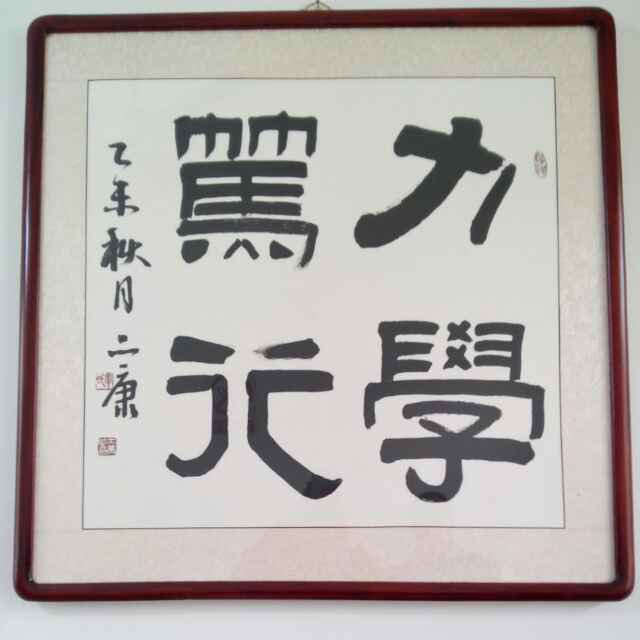 力學
篤行
乙未秋月康